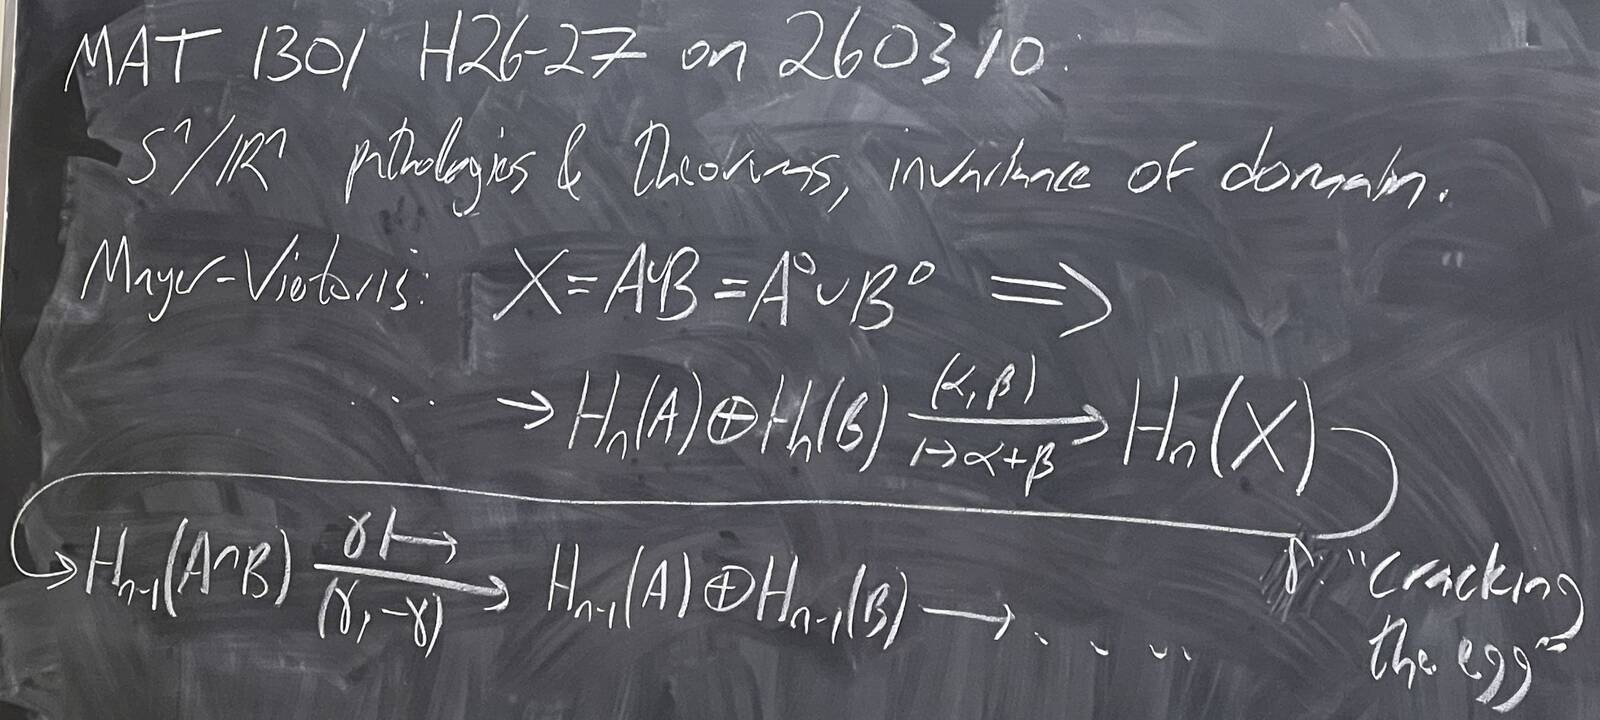 MAT 1301 H26-27 on 260310:
Sⁿ/ℝⁿ pathologies & theorems, invariance of domain.
Mayer-Vietoris: X = A∪B = A°∪B° ⟹
... → Hₙ(A)⊕Hₙ(B) (α,β) ↦ α+β → Hₙ(X)
→ Hₙ₋₁(A∩B) γ ↦ (γ,-γ) → Hₙ₋₁(A)⊕Hₙ₋₁(B) → ....
"cracking
the egg"